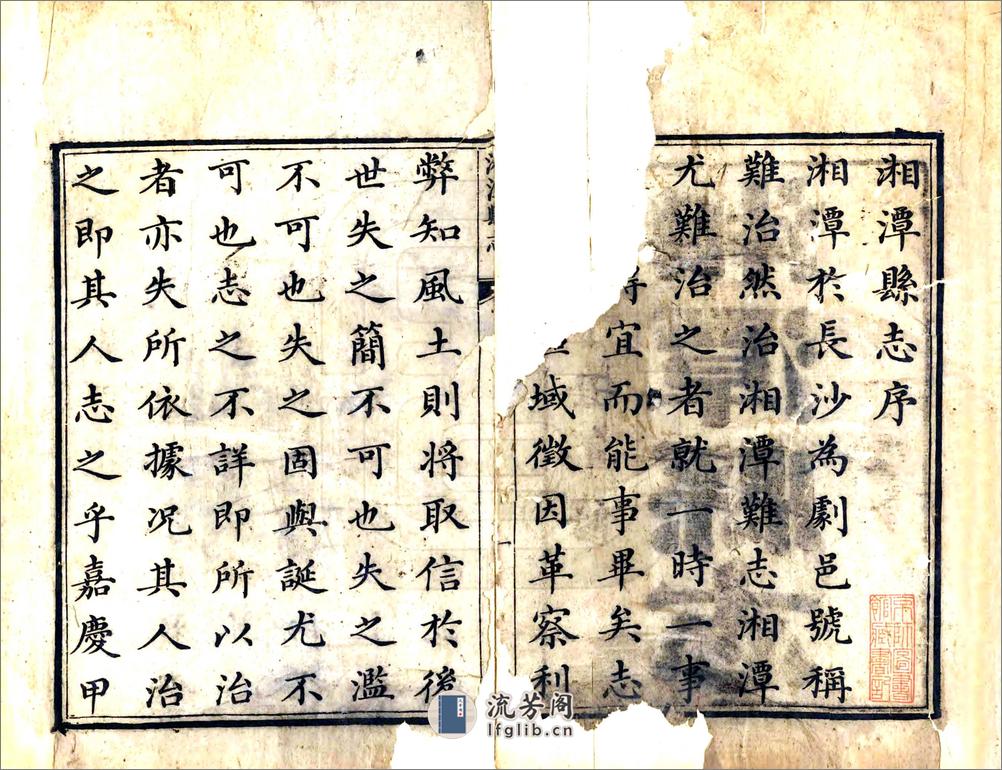 湘潭縣志序
湘潭於長沙為劇邑號稱
難治然治湘潭難志湘潭
尤難治之者就一時一事
宜而能事畢矣志
域徵因革察利
弊知風土則將取信於後
世失之簡不可也失之濫
不可也失之固與誕尤不
可也志之不詳即所以治
者亦失所依據况其人治
之即其人志之乎嘉慶甲
流芳阁
lfglib.cn